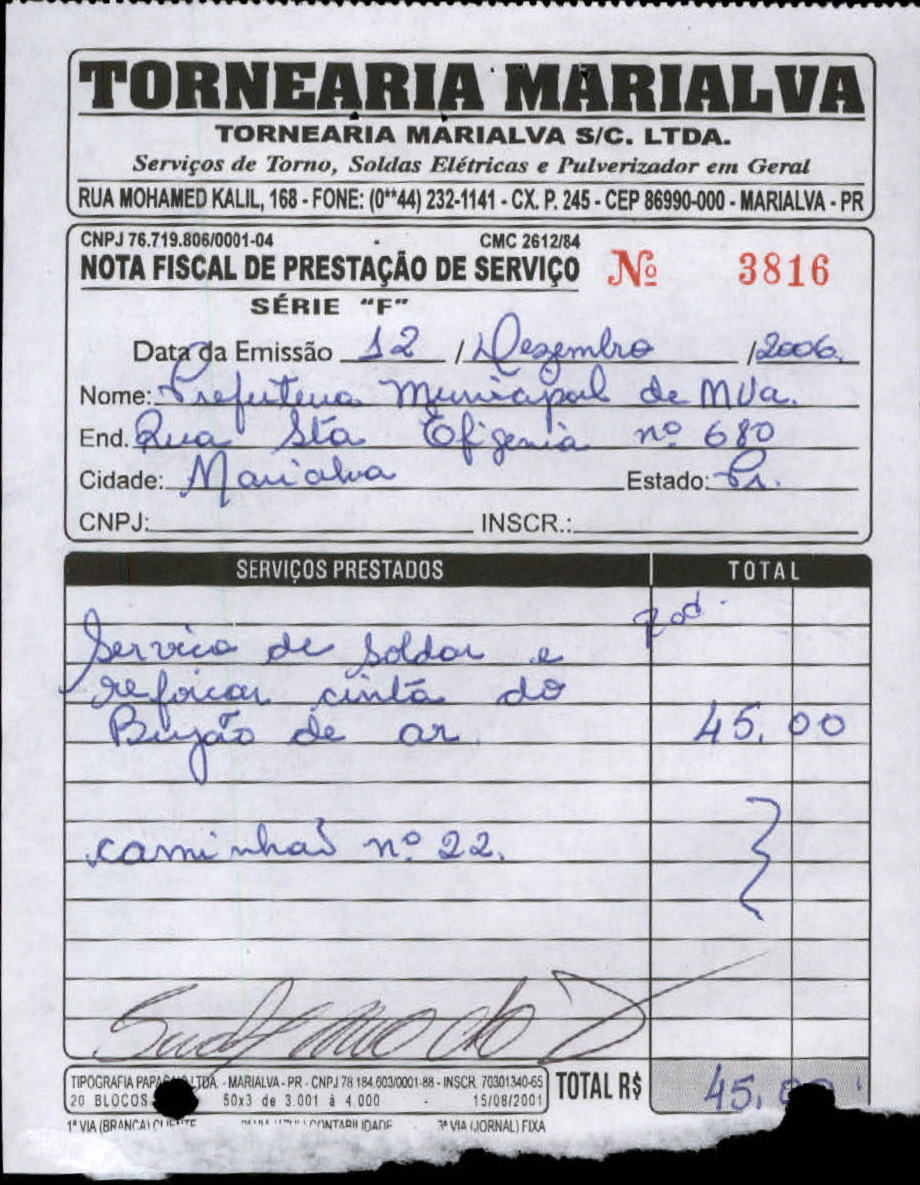 TORNEARIA MARIALVA
TORNEARIA MARIALVA S/C. LTDA.
Serviços de Torno, Soldas Elétricas e Pulverizador em Geral
RUA MOHAMED KALIL, 168 - FONE: (0**44) 232-1141 - CX. P. 245 - CEP 86990-000 - MARIALVA - PR
CNPJ 76.719.806/0001-04 CMC 2612/84
NOTA FISCAL DE PRESTAÇÃO DE SERVIÇO Nº 3816
SÉRIE "F"
Data da Emissão 12 / Dezembro /2006.
Nome: Prefeitura Municipal de MVa.
End. Rua Sta Efigenia nº 680
Cidade: Marialva Estado: Pr.
CNPJ: INSCR.:
SERVIÇOS PRESTADOS TOTAL
Rod.
Servico de Soldar e
reforcar cinta do
Bujão de ar 45,00
caminhaõ nº 22.
TIPOGRAFIA LTDA. - MARIALVA - PR - CNPJ 78 184.603/0001-88 - INSCR. 70301340-65
20 BLOCOS 50x3 de 3.001 à 4.000 - 15/08/2001
TOTAL R$ 45,00
1ª VIA (BRANCA) CLIENTE CONTABILIDADE 3ª VIA (JORNAL) FIXA